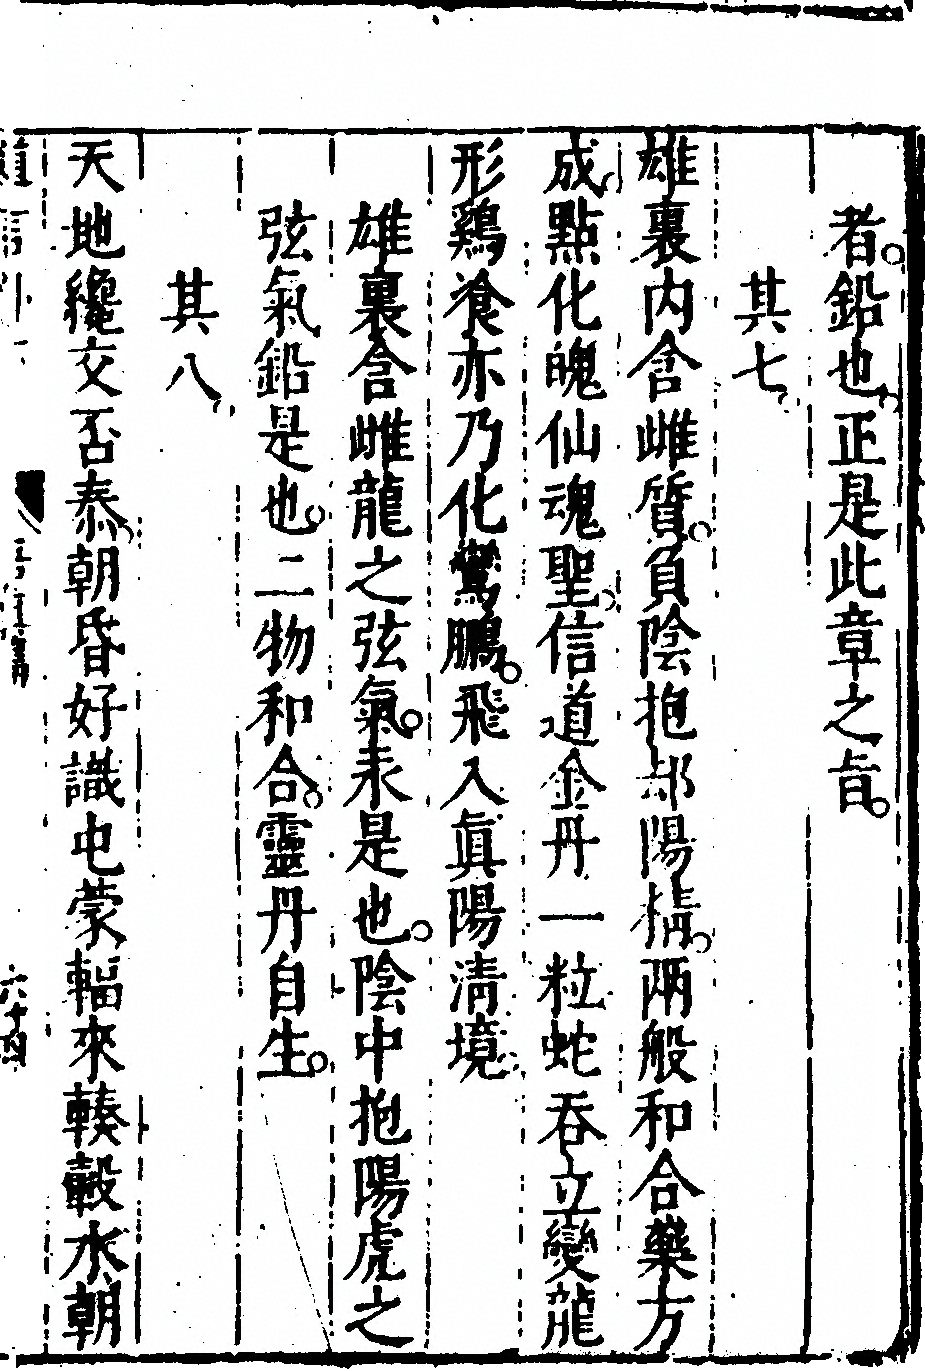 者鉛也正是此章之旨
其七
雄裏内含雌質負陰抱却陽精兩般和合藥方
成點化魄仙魂聖信道金丹一粒蛇吞立變龍
形鷄飡亦乃化鸞鵬飛入眞陽清境
雄裏含雌龍之弦氣汞是也陰中抱陽虎之
弦氣鉛是也二物和合靈丹自生
其八
天地纔交否泰朝昏好識屯蒙輻來輳轂水朝
六十四